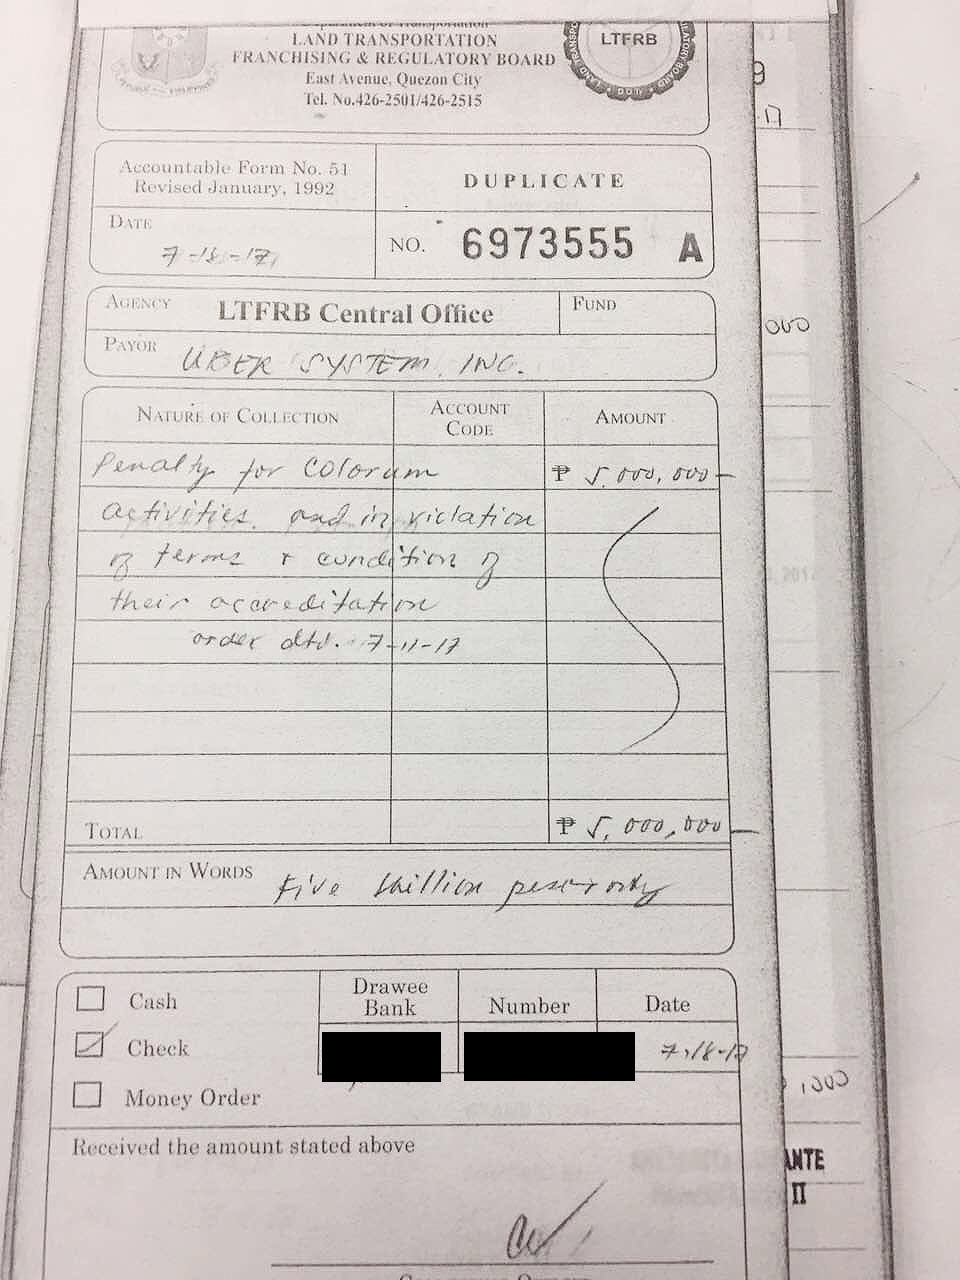 Department of Transportation
LAND TRANSPORTATION
FRANCHISING & REGULATORY BOARD
East Avenue, Quezon City
Tel. No.426-2501/426-2515
LTFRB
Accountable Form No. 51
Revised January, 1992
DUPLICATE
DATE
7-18-17
NO. 6973555 A
AGENCY LTFRB Central Office
FUND
PAYOR UBER SYSTEM, INC.
NATURE OF COLLECTION
ACCOUNT
CODE
AMOUNT
Penalty for Colorum ₱ 5,000,000-
activities and in violation
of terms & condition of
their accreditation
order dtd. 7-11-17
TOTAL ₱ 5,000,000-
AMOUNT IN WORDS Five Million pesos only
Cash
Check
Money Order
Drawee
Bank
Number
Date
7-18-17
Received the amount stated above
ANTE
II